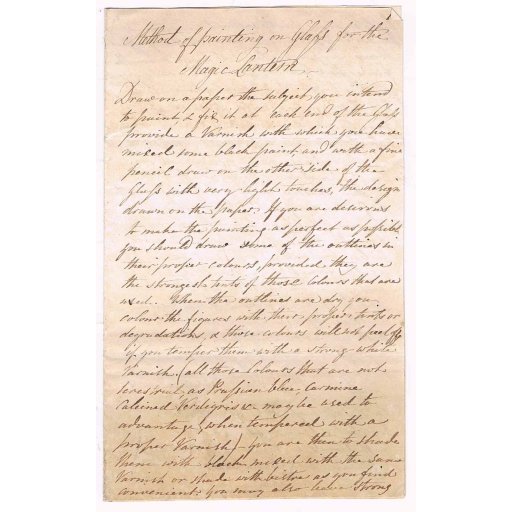 1
Method of painting on Glass for the
Magic Lantern
Draw on a paper the subject you intend
to paint, & fix it at each end of the Glass
provide a Varnish with which you have
mixed some black paint and with a fine
pencil draw on the other side of the
Glass with very light touches, the design
drawn on the paper. If you are desirous
to make the painting as perfect as possible
you should draw some of the outlines in
their proper colours, provided they are
the strongest tints of those Colours that are
used. When the outlines are dry you
colour the figures with their proper tints or
degradations, & those colours will not peel off
if you temper them with a strong white
Varnish (all those Colours that are not
terestrial, as Prussian blue Carmine
Calcined Verdigris &c may be used to
advantage (when tempered with a
proper Varnish) – you are then to shade
them with black mixed with the same
Varnish or shade with bistre as you find
convenient: you may also leave strong